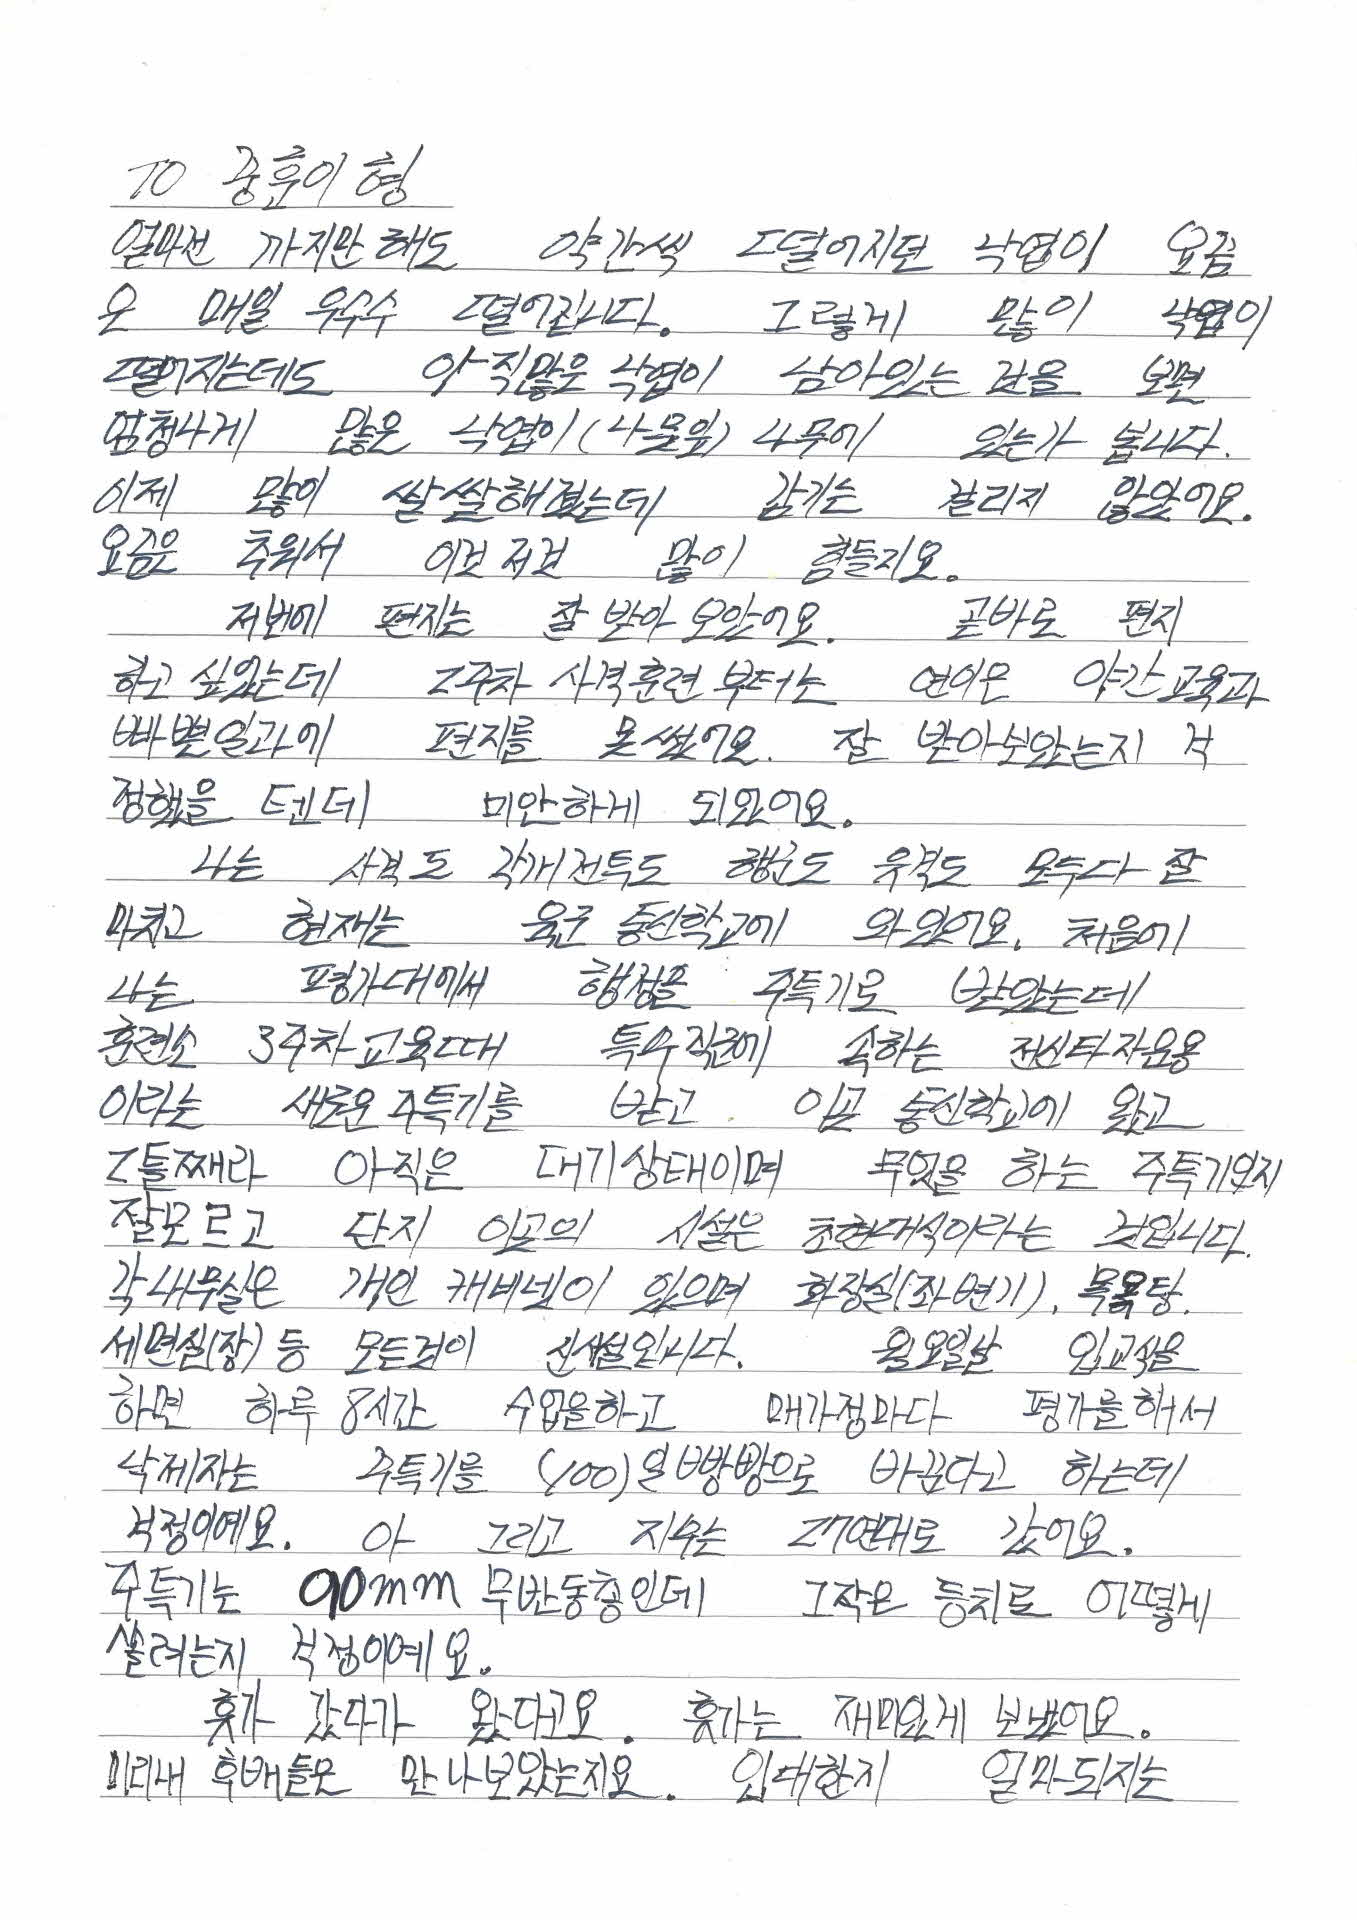 TO 중훈이 형
얼마전 까지만해도 약간씩 떨어지던 낙엽이 요즘
은 매일 우수수 떨어집니다. 그렇게 많이 낙엽이
떨어지는데도 아직많은 낙엽이 남아있는 것을 보면
엄청나게 많은 낙엽이(나뭇잎) 나무에 있는가 봅니다.
이제 많이 쌀쌀해졌는데 감기는 걸리지 않았어요.
요즘은 추워서 이것저것 많이 힘들지요.
저번에 편지는 잘 받아 보았어요. 곧바로 편지
하고 싶었는데 2주차 사격훈련부터는 연이은 야간교육과
빠쁜일과에 편지를 못썼어요. 잘 받아보았는지 걱
정했을 텐데 미안하게 되었어요.
나는 사격도 각개전투도 행군도 유격도 모두다 잘
마치고 현재는 육군 통신학교에 와있어요. 처음에
나는 평가대에서 행정을 주특기로 받았는데
훈련소 3주차교육때 특수직군에 속하는 전신타자운용
이라는 새로운주특기를 받고 이곳 통신학교에 왔고
2틀째라 아직은 대기상태이며 무엇을 하는 주특기인지
잘모르고 단지 이곳의 시설은 초현대식이라는 것입니다.
각내무실은 개인 캐비넷이 있으며 화장실(좌변기), 목욕탕.
세면실(장)등 모든것이 신시설입니다. 월요일날 입교식을
하면 하루 8시간 수업을하고 매가정마다 평가를해서
낙제자는 주특기를 (100)일빵빵으로 바꾼다고 하는데
걱정이예요. 아 그리고 지우는 27연대로 갔어요.
주특기는 90mm무반동총인데 그작은 등치로 어떻게
쏠려는지 걱정이예요.
휴가 갔다가 왔다고요. 휴가는 재미있게 보냈어요.
미리내 후배들은 만나보았는지요. 입대한지 얼마되지는